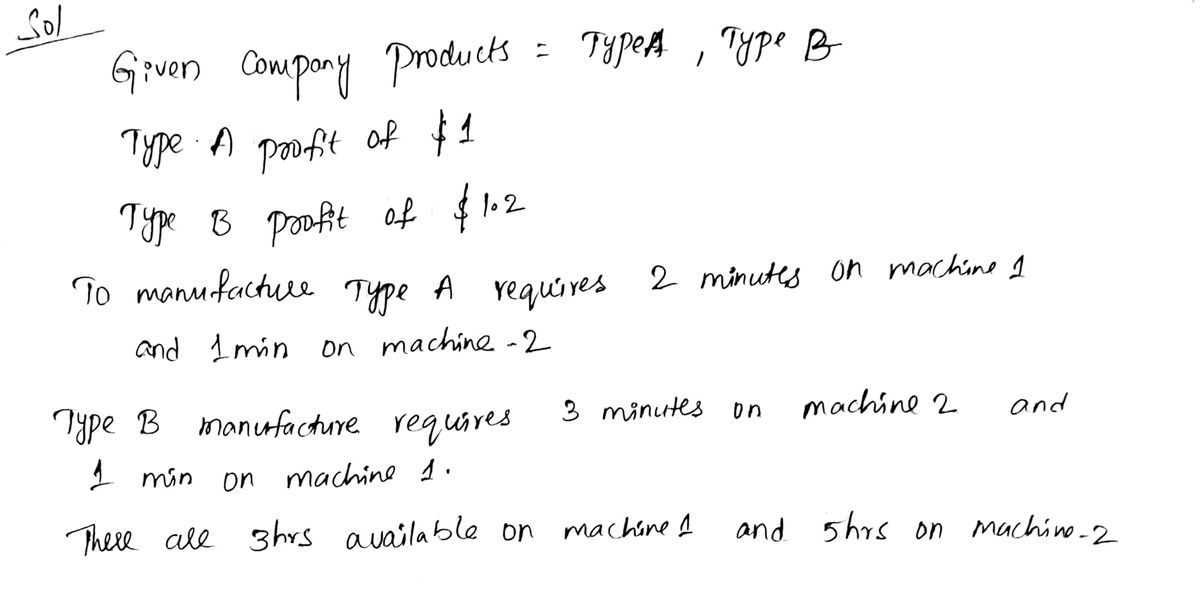 Sol
Given Company Products = Type A , Type B
Type A profit of $1
Type B profit of $1.2
To manufacture Type A requires 2 minutes on machine 1
and 1 min on machine -2
Type B manufacture requires 3 minutes on machine 2 and
1 min on machine 1.
There are 3hrs available on machine 1 and 5hrs on machine-2